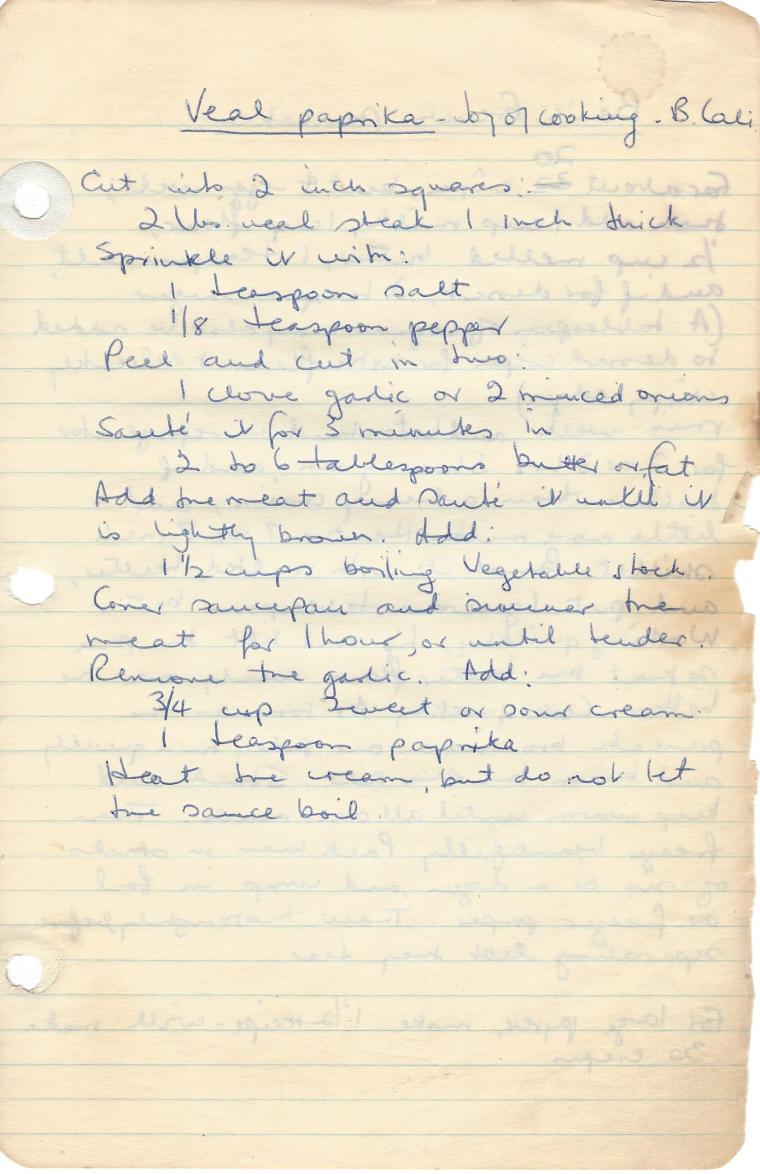 Veal paprika - Joy of cooking - B. Cali
Cut into 2 inch squares:
2 lbs. veal steak 1 inch thick
Sprinkle it with:
1 teaspoon salt
1/8 teaspoon pepper
Peel and cut in two:
1 clove garlic or 2 minced onions
Sauté it for 3 minutes in
2 to 6 tablespoons butter or fat
Add the meat and sauté it until it
is lightly brown. Add:
1 1/2 cups boiling vegetable stock.
Cover saucepan and simmer the
meat for 1 hour, or until tender.
Remove the garlic. Add:
3/4 cup sweet or sour cream
1 teaspoon paprika
Heat the cream, but do not let
the sauce boil.